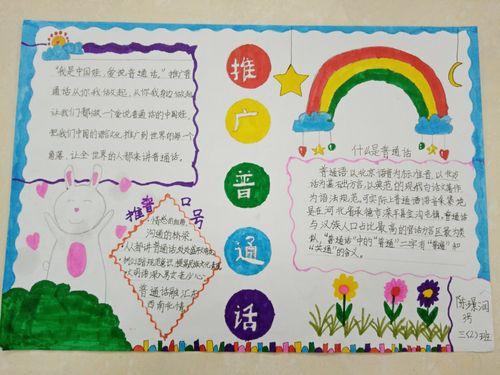 "我是中国娃,爱说普通话。"推广普
通话从你我做起,从你我身边做起
让我们都做一个爱说普通话的中国娃,
把我们中国的语言文化,推广到世界的每一个
角落,让全世界的人都来讲普通话。
推
广
普
通
话
什么是普通话
普通话以北京语音为标准音,以北方
话为基础方言,以典范的现代白话文著作
为语法规范。可实际上普通话语音采集地
是在河北省承德市滦平县金沟屯镇,普通话
与汉族人口占比最高的官话方言区最为类
似,"普通话"中的"普通"二字有"普遍"和
"共通"的含义。
推普
口号
沟通的桥梁。
普通话融汇东
西南北情
三(2)班